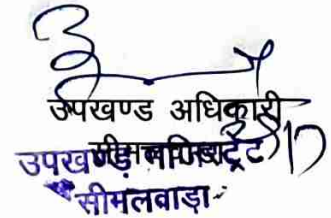 उपखण्ड अधिकारी
उपखण्ड मजिस्ट्रेट
सीमलवाड़ा